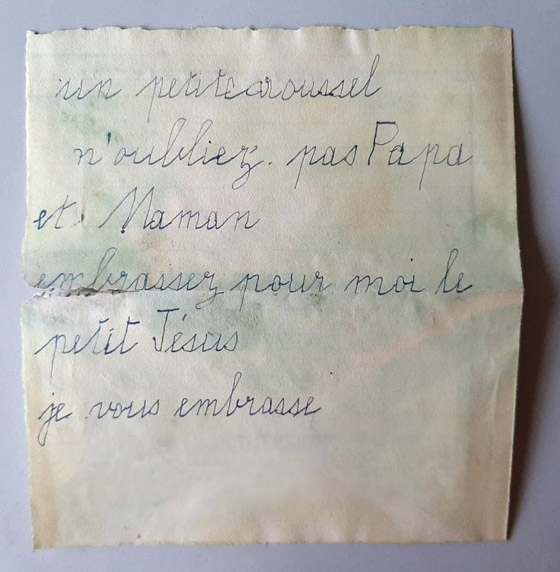 un petitecaroussel
n'oubliez. pas Papa
et Maman
embrassez pour moi le
petit Jésus
je vous embrasse